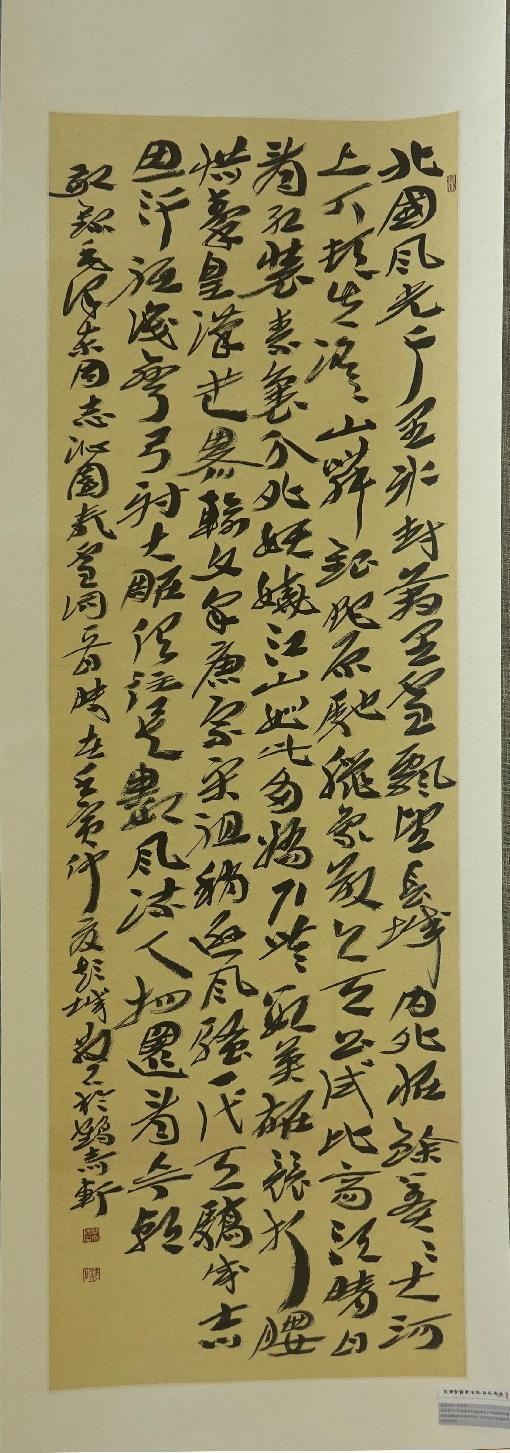 北國風光千里冰封萬里雪飄望長城內外惟餘莽莽大河
上下頓失滔滔山舞銀蛇原馳蠟象欲與天公試比高須晴日
看紅裝素裹分外妖嬈江山如此多嬌引無數英雄競折腰
惜秦皇漢武略輸文采唐宗宋祖稍遜風騷一代天驕成吉
思汗祇識彎弓射大雕俱往矣數風流人物還看今朝
敬錄毛澤東同志沁園春雪詞一首時在壬寅仲夏彭城於志軒